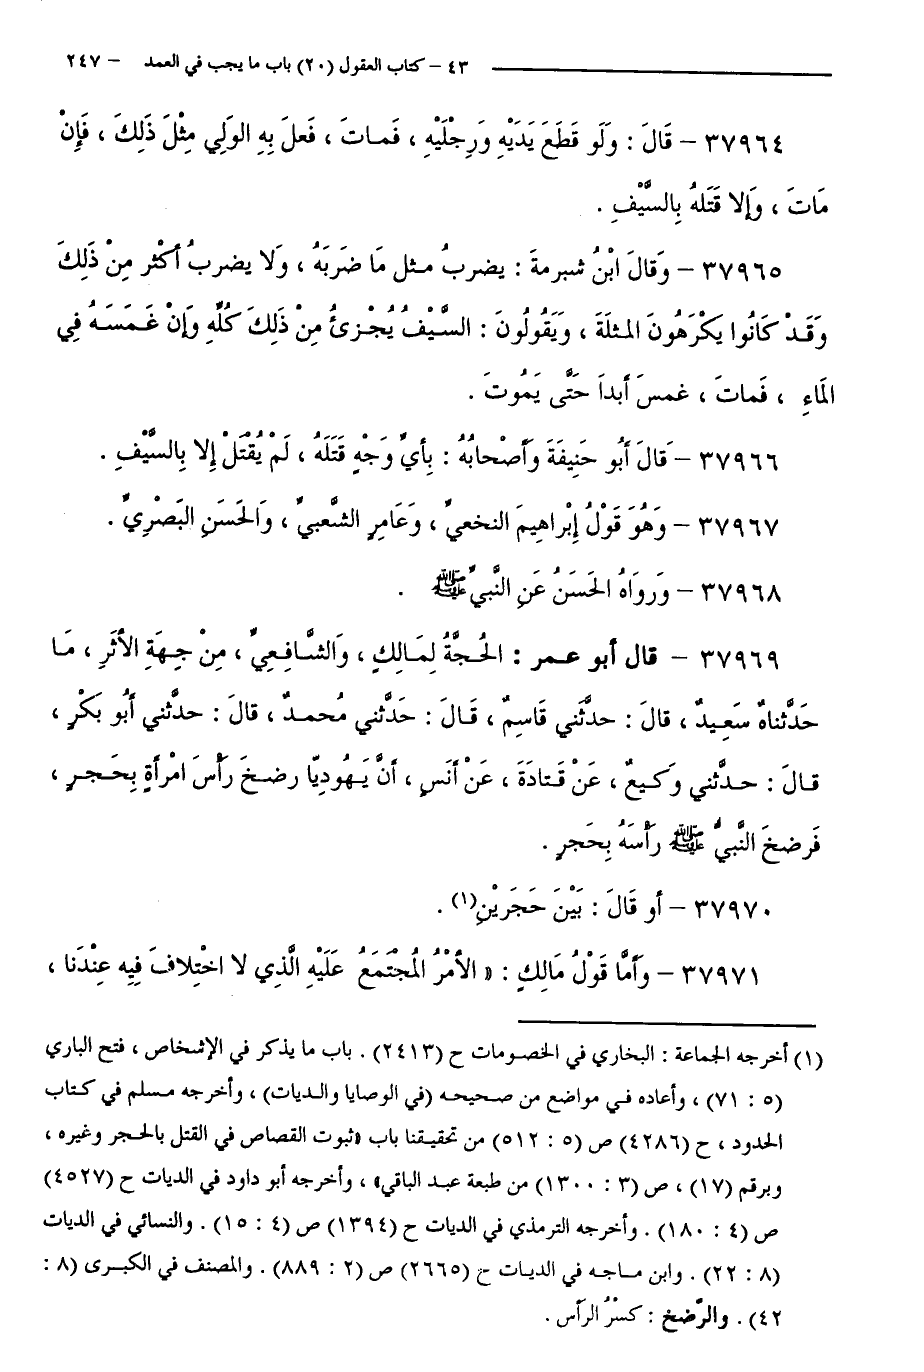 ٤٣ – كتاب العقول (٢٠) باب ما يجب في العمد – ٢٤٧
٣٧٩٦٤ – قَالَ : وَلَو قَطَعَ يَدَيْهِ وَرِجْلَيْهِ ، فَماتَ ، فَعلَ بِهِ الوَلِي مِثْلَ ذَلِكَ ، فَإِنْ
مَاتَ ، وَإِلا قَتَلهُ بِالسَّيْفِ .
٣٧٩٦٥ – وَقالَ ابْنُ شبرمةَ : يضربُ مثل مَا ضَرَبَهُ ، وَلا يضربُ أكْثر مِنْ ذَلِكَ
وَقَدْ كَانُوا يَكْرَهُونَ المثلَةَ ، وَيَقُولُونَ : السَّيْفُ يُجْزئُ مِنْ ذَلِكَ كُلِّهِ وَإنْ غَمَسَهُ فِي
المَاءِ ، فَماتَ ، غمسَ أبداً حَتَّى يَمُوتَ .
٣٧٩٦٦ – قَالَ أبُو حَنِيفَةَ وَأصْحابُهُ : بِأيِّ وَجْهٍ قَتَلَهُ ، لَمْ يُقْتَلْ إلا بِالسَّيْفِ .
٣٧٩٦٧ – وَهُوَ قَوْلُ إبْراهِيمَ النخعيِّ ، وَعَامِرٍ الشَّعبيِّ ، وَالحَسَنِ البَصْرِيِّ .
٣٧٩٦٨ – وَرواهُ الحَسَنُ عَنِ النَّبيِّ ﷺ .
٣٧٩٦٩ – قال أبو عمر : الحُجَّةُ لِمَالِكٍ ، وَالشَّافِعِيِّ ، مِنْ جِهَةِ الأثَرِ ، مَا
حَدَّثناهُ سَعِيدٌ ، قالَ : حدَّثَني قَاسِمٌ ، قَالَ : حَدَّثَني مُحمدٌ ، قالَ : حدَّثَني أبُو بَكْرٍ ،
قالَ : حدَّثَني وَكِيعٌ ، عَنْ قَتادَةَ ، عَنْ أنَسٍ ، أنَّ يَهُودِيّا رضخَ رَأْسَ امْرأةٍ بِحَجرٍ ،
فَرضخَ النَّبيُّ ﷺ رَأْسَهُ بِحَجرٍ .
٣٧٩٧٠ – أو قَالَ : بَيْنَ حَجَرَيْنِ(١) .
٣٧٩٧١ – وَأمَّا قَوْلُ مَالِكٍ : « الأمْرُ المُجْتَمَعُ عَلَيْهِ الَّذِي لا اخْتِلافَ فِيهِ عِنْدَنا ،
(١) أخرجه الجماعة : البخاري في الخصومات ح (٢٤١٣) . باب ما يذكر في الإشخاص ، فتح الباري
(٥ : ٧١) ، وأعاده في مواضع من صحيحه (في الوصايا والديات) ، وأخرجه مسلم في كتاب
الحدود ، ح (٤٢٨٦) ص (٥ : ٥١٢) من تحقيقنا باب «ثبوت القصاص في القتل بالحجر وغيره ،
وبرقم (١٧) ، ص (٣ : ١٣٠٠) من طبعة عبد الباقي» ، وأخرجه أبو داود في الديات ح (٤٥٢٧)
ص (٤ : ١٨٠) . وأخرجه الترمذي في الديات ح (١٣٩٤) ص (٤ : ١٥) . والنسائي في الديات
(٨ : ٢٢) . وابن ماجه في الديات ح (٢٦٦٥) ص (٢ : ٨٨٩) . والمصنف في الكبرى (٨ :
٤٢) . والرَّضخ : كسْرُ الرأس .